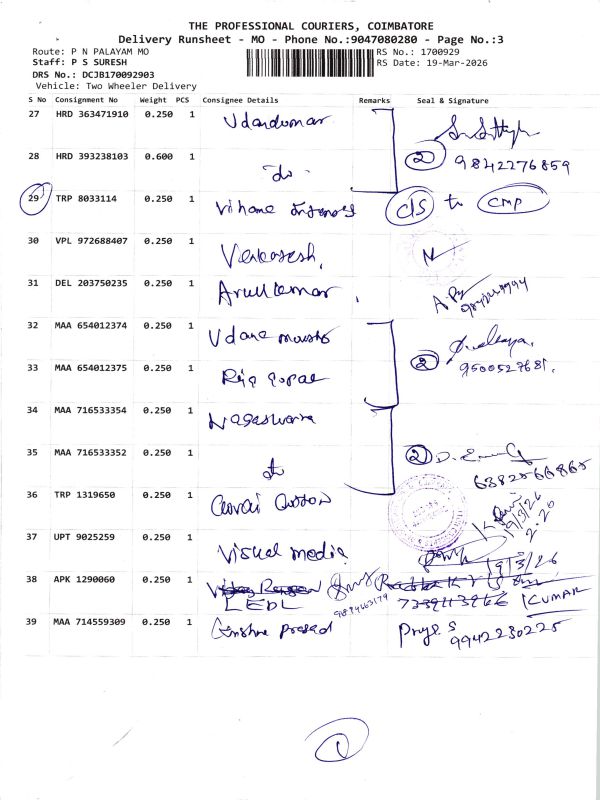 THE PROFESSIONAL COURIERS, COIMBATORE
Delivery Runsheet - MO - Phone No.:9047080280 - Page No.:3
Route: P N PALAYAM MO
RS No.: 1700929
Staff: P S SURESH
RS Date: 19-Mar-2026
DRS No.: DCJB170092903
Vehicle: Two Wheeler Delivery
S No Consignment No Weight PCS Consignee Details Remarks Seal & Signature
27 HRD 363471910 0.250 1
28 HRD 393238103 0.600 1 do 2 9842276859
29 TRP 8033114 0.250 1 C/S to CMP
30 VPL 972688407 0.250 1 Venkatesh
31 DEL 203750235 0.250 1 Arul Kumar
32 MAA 654012374 0.250 1
33 MAA 654012375 0.250 1 Raja gopal 2 9500527681
34 MAA 716533354 0.250 1 Nageswara
35 MAA 716533352 0.250 1 do 2 6382566865
36 TRP 1319650 0.250 1 19/3/26 2.20
37 UPT 9025259 0.250 1 Visual media 19/3/26
38 APK 1290060 0.250 1 LEDL KUMAR
39 MAA 714559309 0.250 1 Prasad 9942230225
1